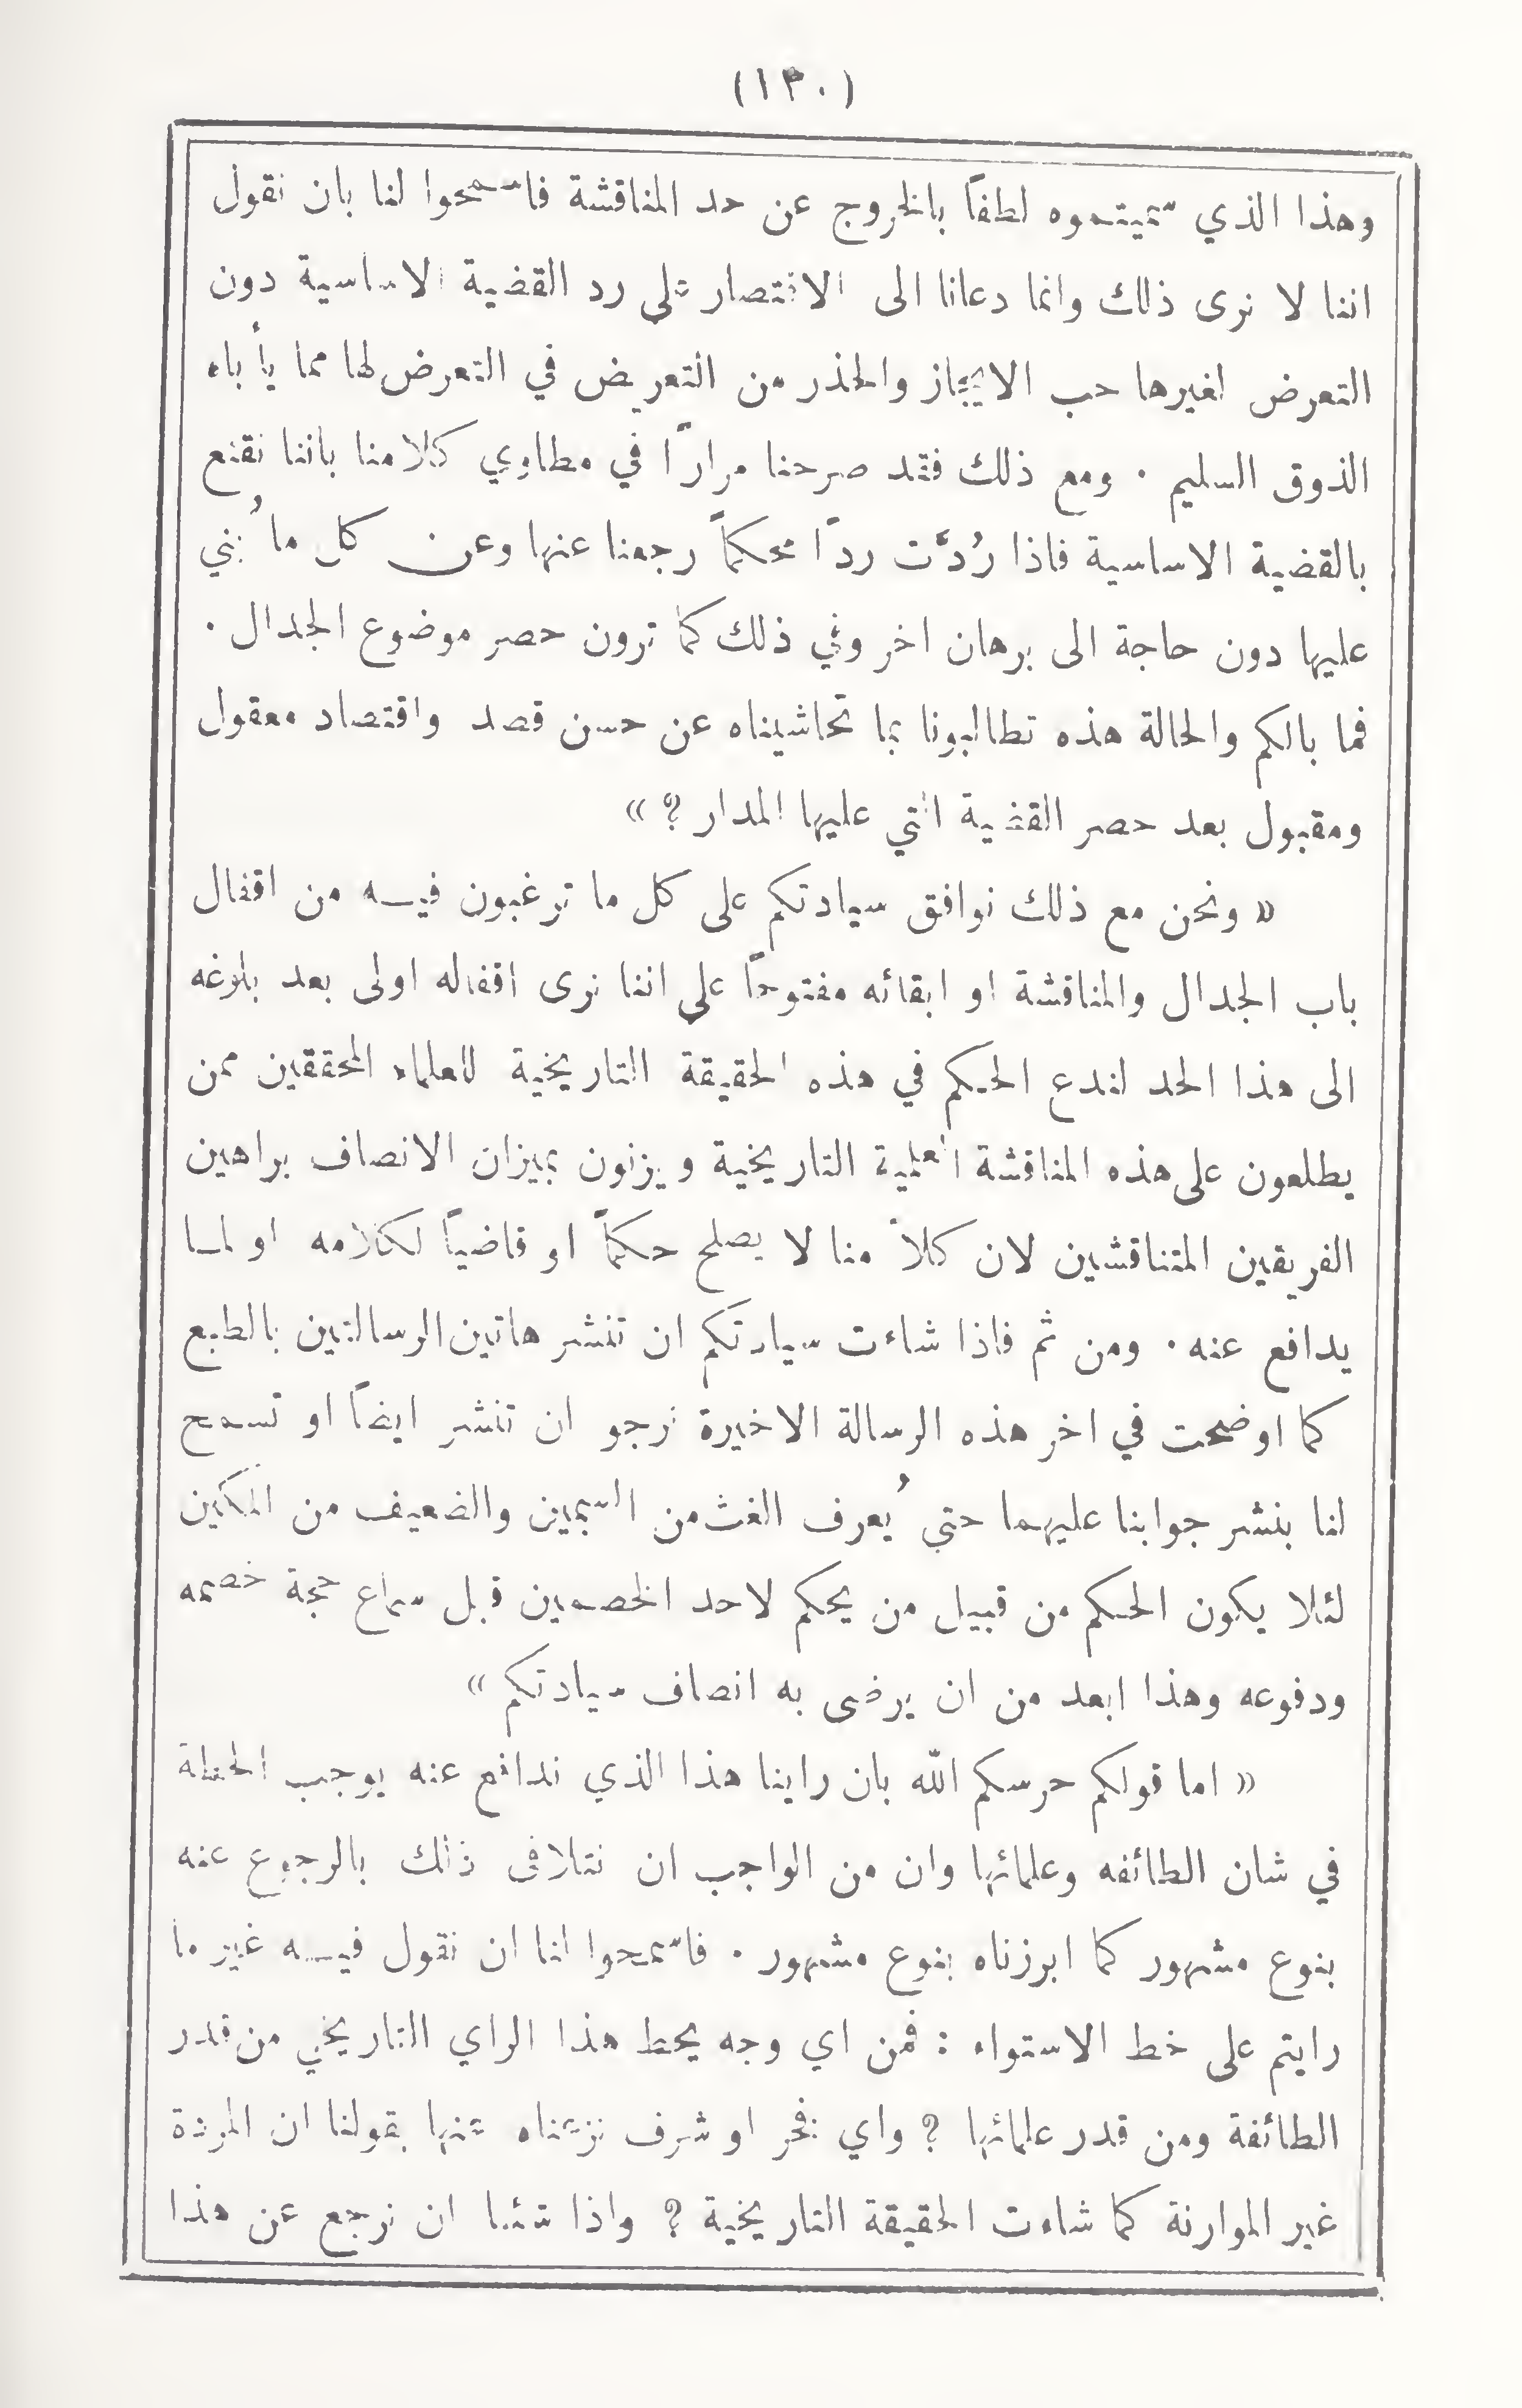 (١٣٠)
وهذا الذي سميتموه لطفاً بالخروج عن حد المناقشة فاسمحوا لنا بان نقول
اننا لا نرى ذلك وانما دعانا الى الاقتصار على رد القضية الاساسية دون
التعرض لغيرها حب الايجاز والحذر من التعريض في التعرض لها مما يأباه
الذوق السليم . ومع ذلك فقد صرحنا مراراً في مطاوي كلامنا باننا نقنع
بالقضية الاساسية فاذا رُدَّت رداً محكماً رجعنا عنها وعن كل ما بُني
عليها دون حاجة الى برهان اخر وفي ذلك كما ترون حصر موضوع الجدال .
فما بالكم والحالة هذه تطالبونا بما تحاشيناه عن حسن قصد واقتصاد معقول
ومقبول بعد حصر القضية التي عليها المدار ؟ »
« ونحن مع ذلك نوافق سيادتكم على كل ما ترغبون فيه من اقفال
باب الجدال والمناقشة او ابقائه مفتوحاً على اننا نرى اقفاله اولى بعد بلوغه
الى هذا الحد لندع الحكم في هذه الحقيقة التاريخية للعلماء المحققين ممن
يطلعون على هذه المناقشة العلمية التاريخية ويزنون بميزان الانصاف براهين
الفريقين المتناقشين لان كلاً منا لا يصلح حكماً او قاضياً لكلامه او لما
يدافع عنه . ومن ثم فاذا شاءت سيادتكم ان تنشر هاتين الرسالتين بالطبع
كما اوضحت في اخر هذه الرسالة الاخيرة نرجو ان تنشر ايضاً او تسمح
لنا بنشر جوابنا عليهما حتى يُعرف الغث من السمين والضعيف من المكين
لئلا يكون الحكم من قبيل من يحكم لاحد الخصمين قبل سماع حجة خصمه
ودفوعه وهذا ابعد من ان يرضى به انصاف سيادتكم »
« اما قولكم حرسكم الله بان راينا هذا الذي ندافع عنه يوجب الحطة
في شان الطائفه وعلمائها وان من الواجب ان نتلافى ذلك بالرجوع عنه
بنوع مشهور كما ابرزناه بنوع مشهور . فاسمحوا لنا ان نقول فيه غير ما
رايتم على خط الاستواء : فمن اي وجه يحط هذا الراي التاريخي من قدر
الطائفة ومن قدر علمائها ؟ واي فخر او شرف نزعناه عنها بقولنا ان المردة
غير الموارنة كما شاءت الحقيقة التاريخية ؟ واذا شئنا ان نرجع عن هذا